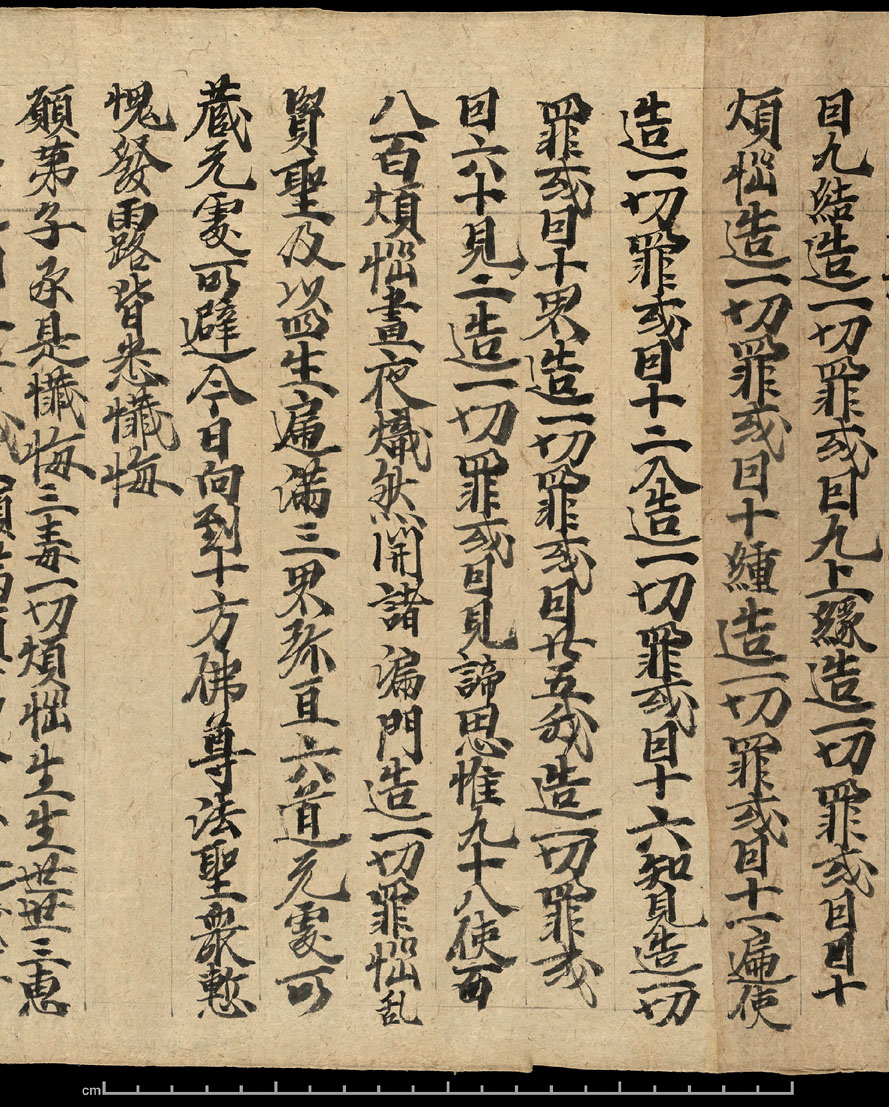 曰九結造一切罪或曰九上緣造一切罪或曰十
煩惱造一切罪或曰十纏造一切罪或曰十一遍使
造一切罪或曰十二入造一切罪或曰十六知見造一切
罪或曰十界造一切罪或曰廿五我造一切罪或
曰六十見二造一切罪或曰見諦思惟九十八使百
八百煩惱晝夜熾然開諸漏門造一切罪惱乱
賢聖及以四生遍滿三界弥亘六道无處可
藏无處可避今日向到十方佛尊法聖衆慙
愧發露皆悉懺悔
願弟子承是懺悔三毒一切煩惱生生世世三恵